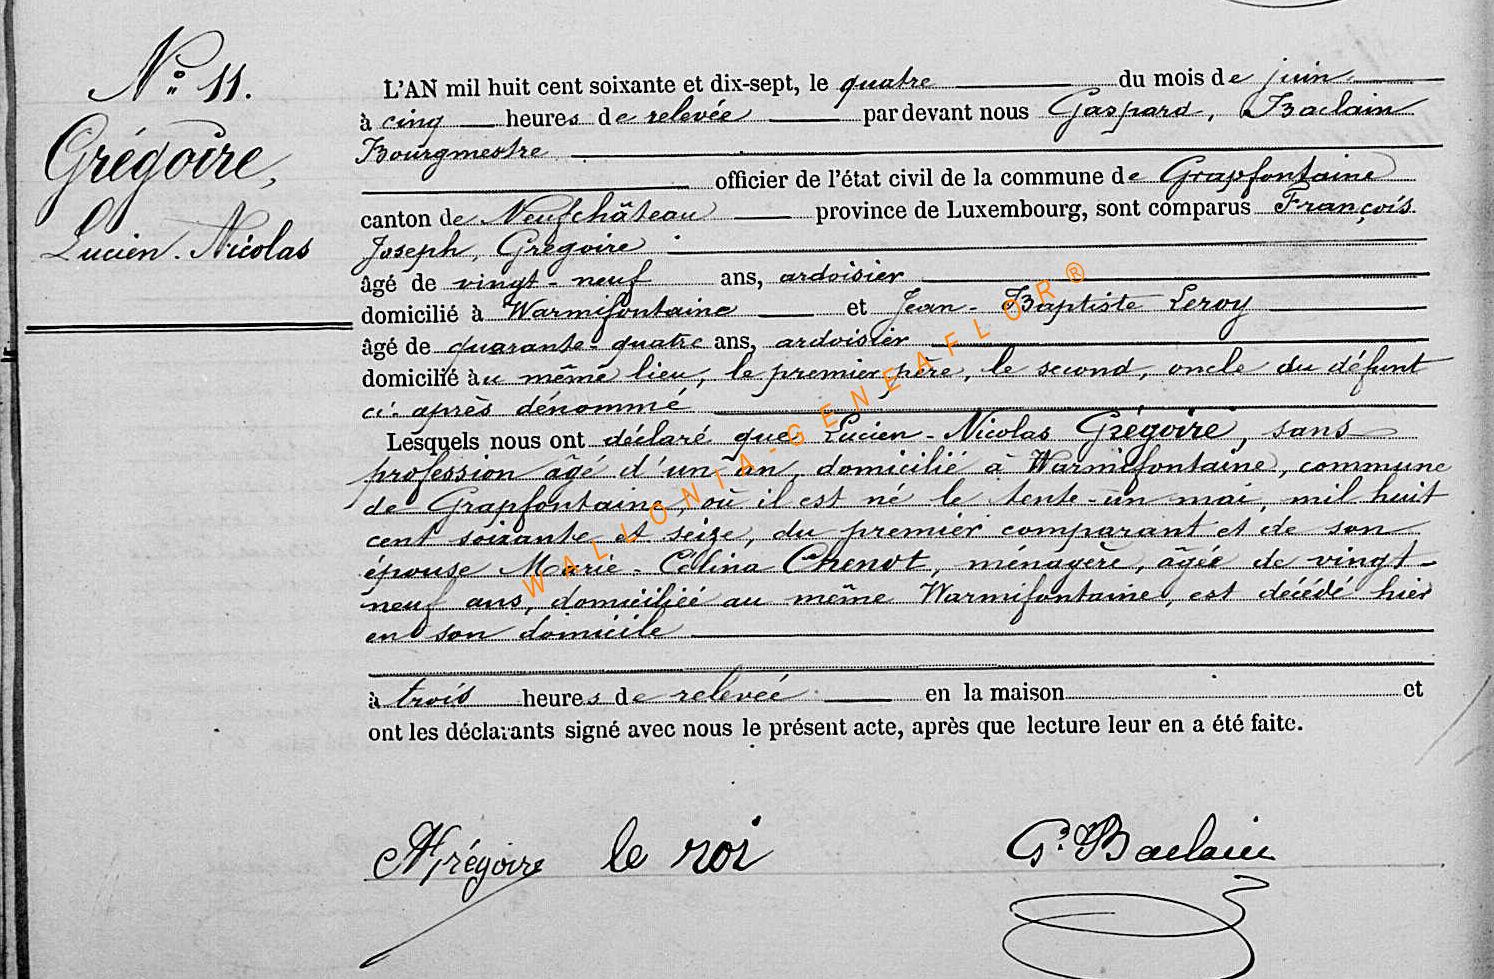 N° 11.
Grégoire,
Lucien-Nicolas
L'AN mil huit cent soixante et dix-sept, le quatre du mois de juin
à cinq heures de relevée par devant nous Gaspard, Baclain
Bourgmestre
officier de l'état civil de la commune de Grapfontaine
canton de Neufchâteau province de Luxembourg, sont comparus François
Joseph, Grégoire
âgé de vingt-neuf ans, ardoisier
domicilié à Warmifontaine et Jean-Baptiste Leroy
âgé de quarante-quatre ans, ardoisier
domicilié au même lieu, le premier père, le second, oncle du défunt
ci-après dénommé
Lesquels nous ont déclaré que Lucien-Nicolas Grégoire, sans
profession âgé d'un an, domicilié à Warmifontaine, commune
de Grapfontaine, où il est né le tente-un mai, mil huit
cent soixante et seize, du premier comparant et de son
épouse Marie-Célina Chenot, ménagère, âgée de vingt-
neuf ans, domiciliée au même Warmifontaine, est décédé hier
en son domicile
à trois heures de relevée en la maison et
ont les déclarants signé avec nous le présent acte, après que lecture leur en a été faite.
Grégoire le roi G. Baclain
WALLONIA-GENEAFLOR®